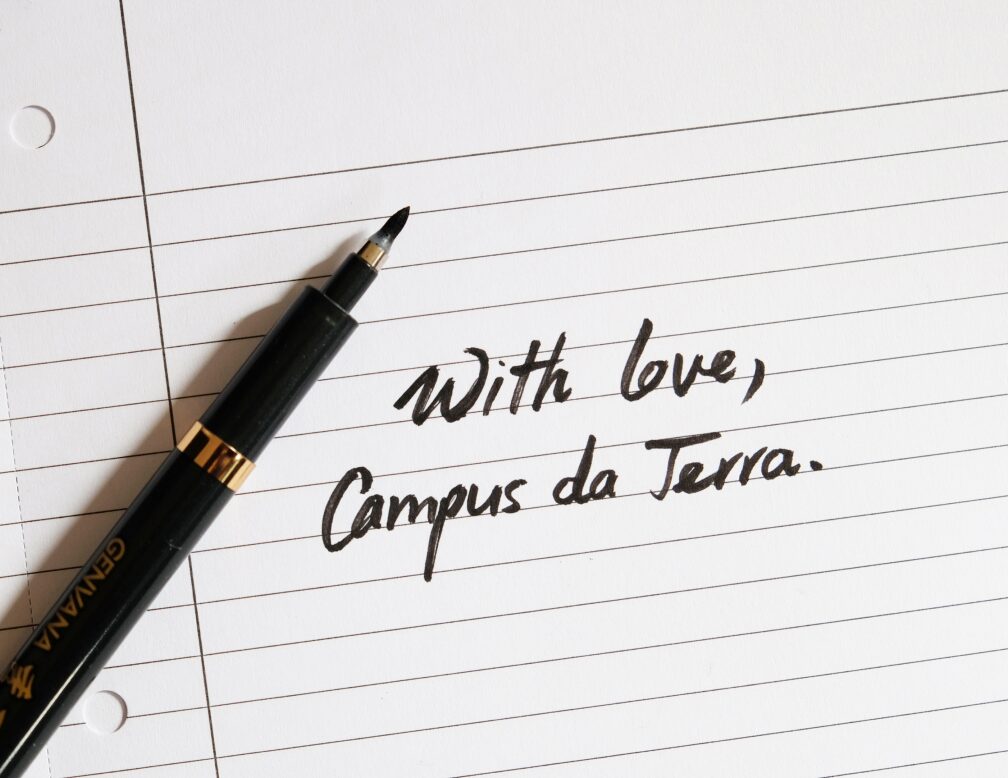 With love,
Campus da Terra.
GENVANA